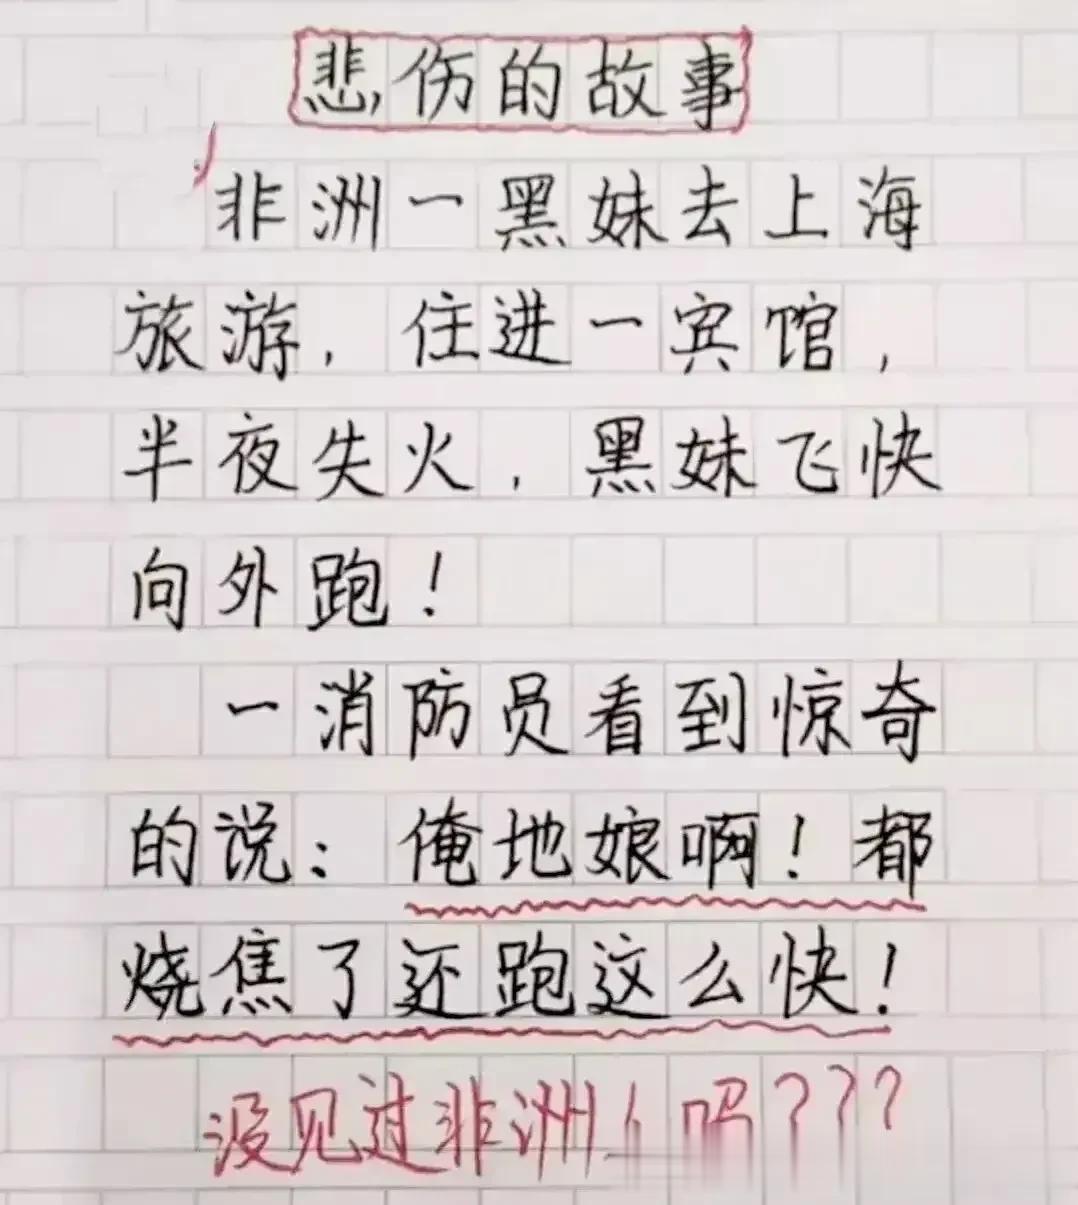 悲伤的故事
非洲一黑妹去上海
旅游，住进一宾馆，
半夜失火，黑妹飞快
向外跑！
一消防员看到惊奇
的说：俺地娘啊！都
烧焦了还跑这么快！
没见过非洲人吗？？？